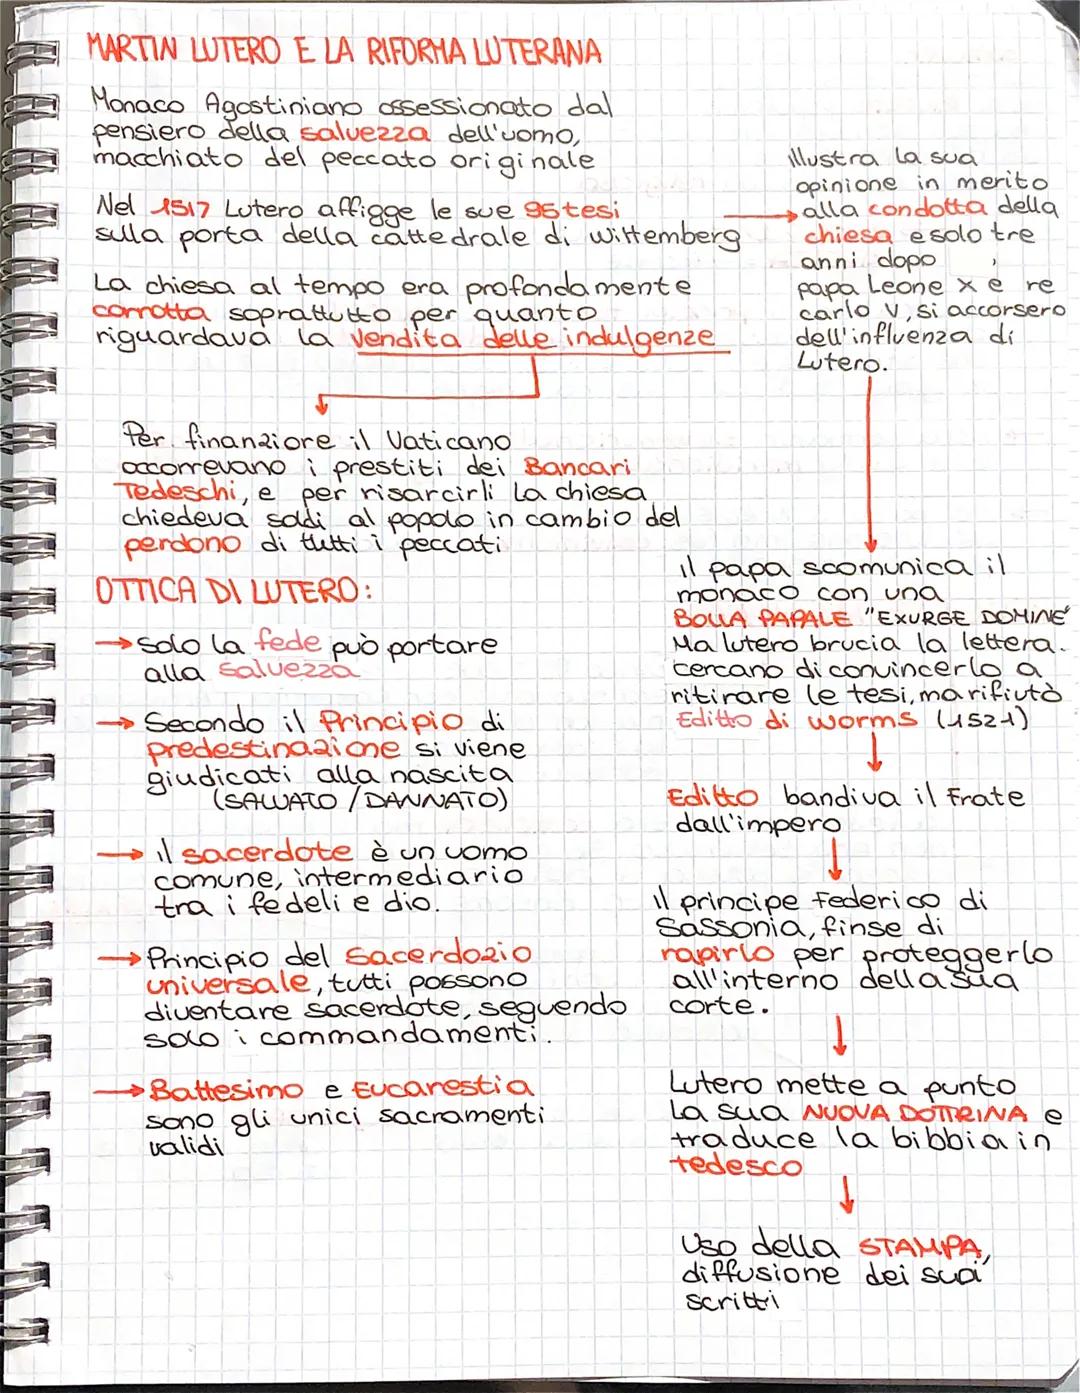 MARTIN LUTERO E LA RIFORMA LUTERANA
Monaco Agostiniano ossessionato dal
pensiero della salvezza dell'uomo,
macchiato del peccato originale
Nel 1517 Lutero affigge le sue 95 tesi
sulla porta della cattedrale di Wittemberg
La chiesa al tempo era profondamente
corrotta soprattutto per quanto
riguardava la vendita delle indulgenze
Per finanziare il Vaticano
occorrevano i prestiti dei Bancari
Tedeschi, e per risarcirli la chiesa
chiedeva soldi al popolo in cambio del
perdono di tutti i peccati
OTTICA DI LUTERO:
→ Solo la fede può portare
alla salvezza
→ Secondo il Principio di
predestinazione si viene
giudicati alla nascita
(SALVATO / DANNATO)
→ il sacerdote è un uomo
comune, intermediario
tra i fedeli e dio.
→ Principio del Sacerdozio
universale, tutti possono
diventare sacerdote, seguendo
solo i commandamenti.
→ Battesimo e Eucarestia
sono gli unici sacramenti
validi
illustra la sua
opinione in merito
alla condotta della
chiesa e solo tre
anni dopo,
papa Leone X e re
carlo V, si accorsero
dell'influenza di
Lutero.
il papa scomunica il
monaco con una
BOLLA PAPALE "EXURGE DOMINE"
Ma lutero brucia la lettera.
cercano di convincerlo a
ritirare le tesi, ma rifiutò
Editto di worms (1521)
Editto bandiva il Frate
dall'impero
il principe Federico di
Sassonia, finse di
rapirlo per proteggerlo
all'interno della sua
corte.
Lutero mette a punto
La sua NUOVA DOTTRINA e
traduce la bibbia in
tedesco
Uso della STAMPA,
diffusione dei suoi
scritti